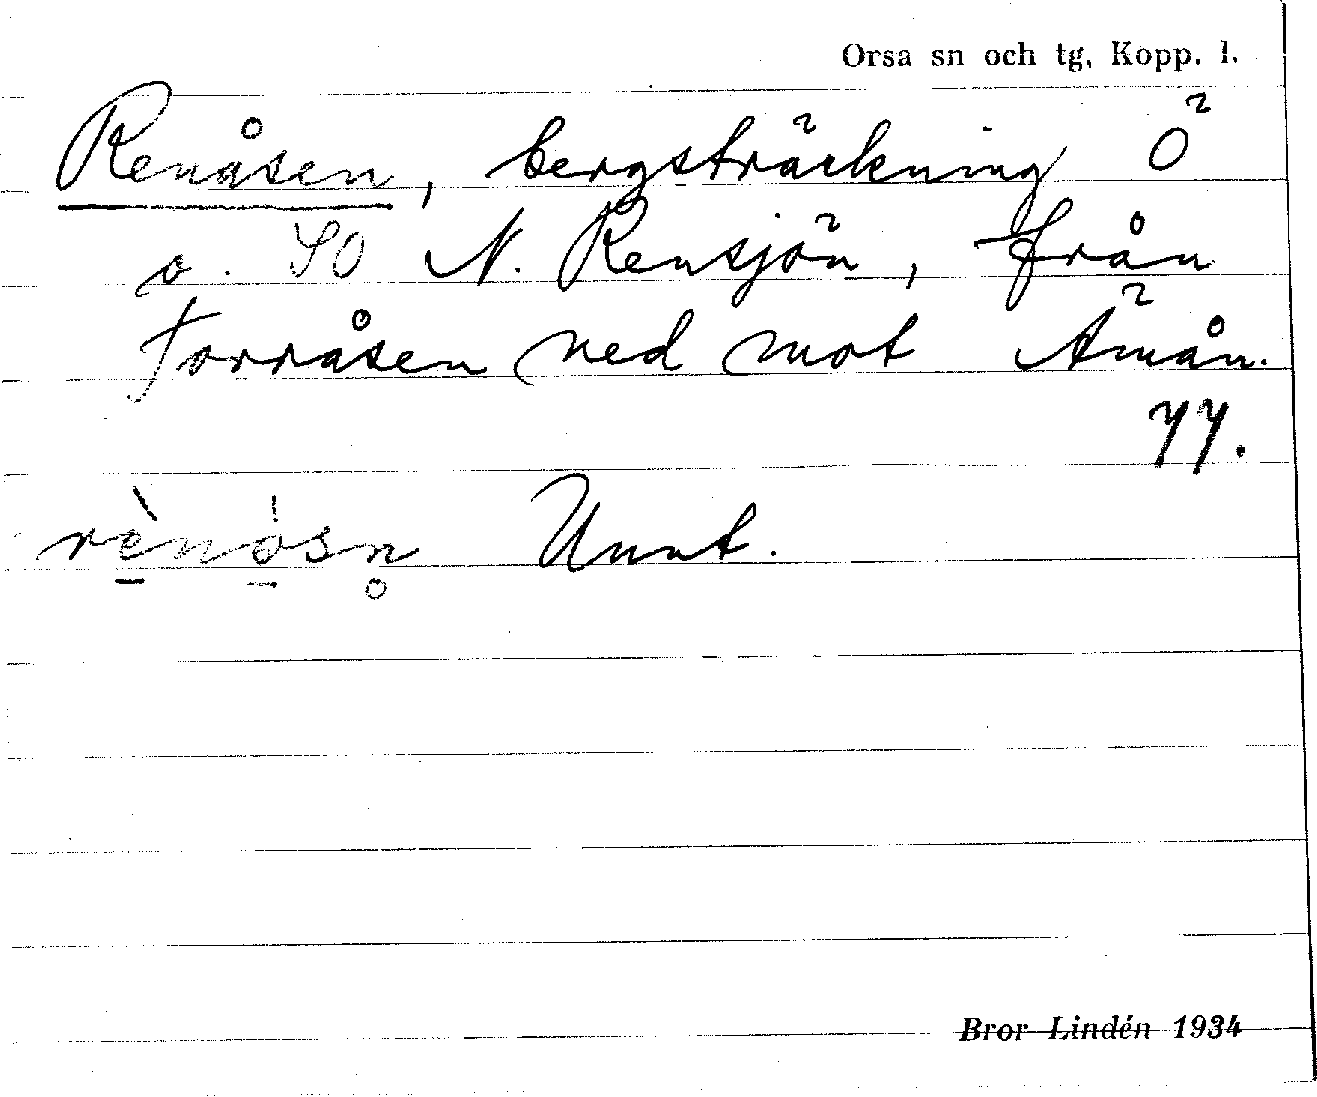 Orsa sn och tg, Kopp. l.
Renåsen, bergsträckning Ö
o. SO N. Rensjön, från
Torråsen ned mot Ämån.
77.
rènòsn Unnt.
Bror Lindén 1934